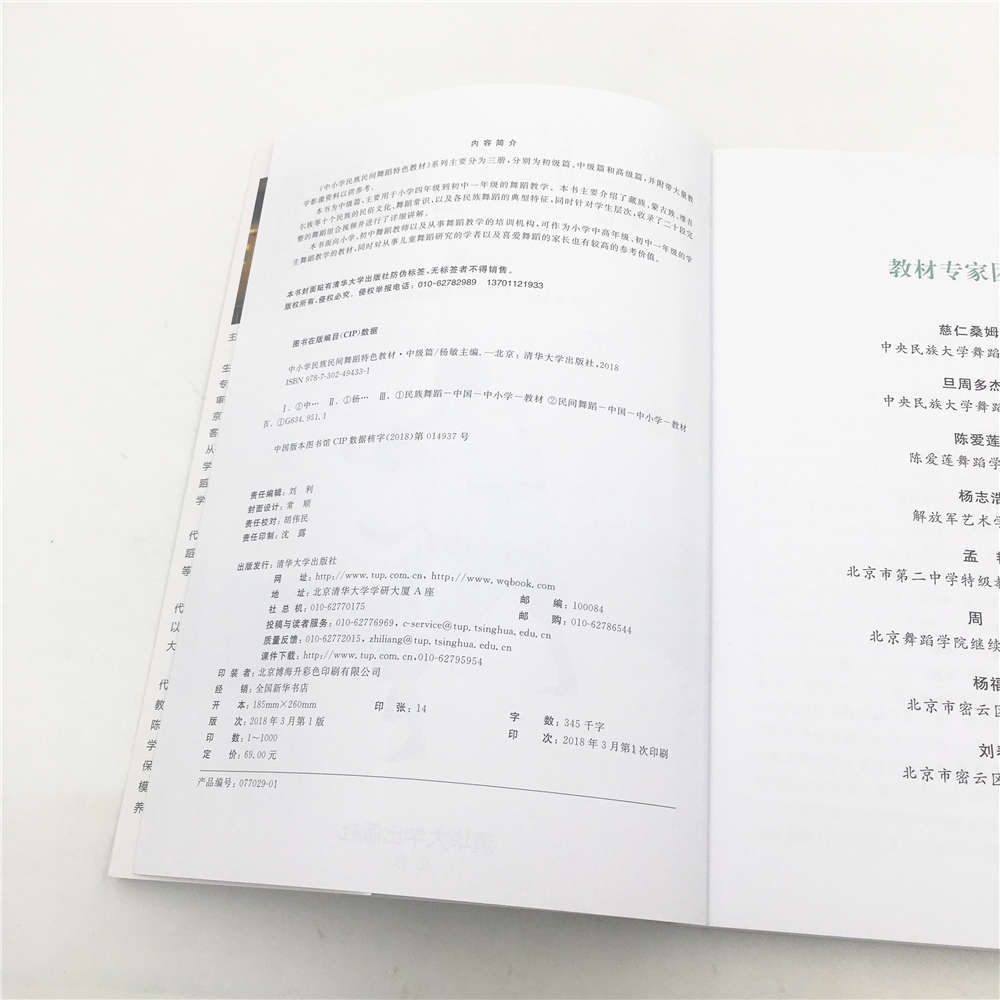 内容简介
《中小学民族民间舞蹈特色教材》系列主要分为三册，分别为初级篇、中级篇和高级篇，并附带大量教
学影像资料以供参考。
本书为中级篇，主要用于小学四年级到初中一年级的舞蹈教学。本书主要介绍了藏族、蒙古族、维吾
尔族等十个民族的民俗文化、舞蹈常识，以及各民族舞蹈的典型特征，同时针对学生层次，收录了二十段完
整的舞蹈组合视频并进行了详细讲解。
本书面向小学、初中舞蹈教师以及从事舞蹈教学的培训机构，可作为小学中高年级、初中一年级的学
生舞蹈教学的教材，同时对从事儿童舞蹈研究的学者以及喜爱舞蹈的家长也有较高的参考价值。
本书封面贴有清华大学出版社防伪标签，无标签者不得销售。
版权所有，侵权必究。侵权举报电话：010-62782989 13701121933
图书在版编目(CIP)数据
中小学民族民间舞蹈特色教材·中级篇/杨敏主编.—北京：清华大学出版社，2018
ISBN 978-7-302-49433-1
Ⅰ.①中… Ⅱ.①杨… Ⅲ.①民族舞蹈－中国－中小学－教材 ②民间舞蹈－中国－中小学－教材
Ⅳ.①G634.951.1
中国版本图书馆CIP数据核字(2018)第014937号
责任编辑：刘 利
封面设计：常 顺
责任校对：胡伟民
责任印制：沈 露
出版发行：清华大学出版社
网 址：http://www.tup.com.cn，http://www.wqbook.com
地 址：北京清华大学学研大厦A座 邮 编：100084
社 总 机：010-62770175 邮 购：010-62786544
投稿与读者服务：010-62776969，c-service@tup.tsinghua.edu.cn
质量反馈：010-62772015，zhiliang@tup.tsinghua.edu.cn
课件下载：http://www.tup.com.cn，010-62795954
印 装 者：北京博海升彩色印刷有限公司
经 销：全国新华书店
开 本：185mm×260mm 印 张：14 字 数：345千字
版 次：2018年3月第1版 印 次：2018年3月第1次印刷
印 数：1～1000
定 价：69.00元
产品编号：077029-01
教材专家
慈仁桑姆
中央民族大学舞蹈
旦周多杰
中央民族大学舞蹈
陈爱莲
陈爱莲舞蹈学
杨志浩
解放军艺术学
孟
北京市第二中学特级教
周
北京舞蹈学院继续
杨福
北京市密云区
刘
北京市密云区
王
生
专
审
京
客
从
学
蹈
学
代
蹈
等
代
以
大
代
教
陈
学
保
模
养